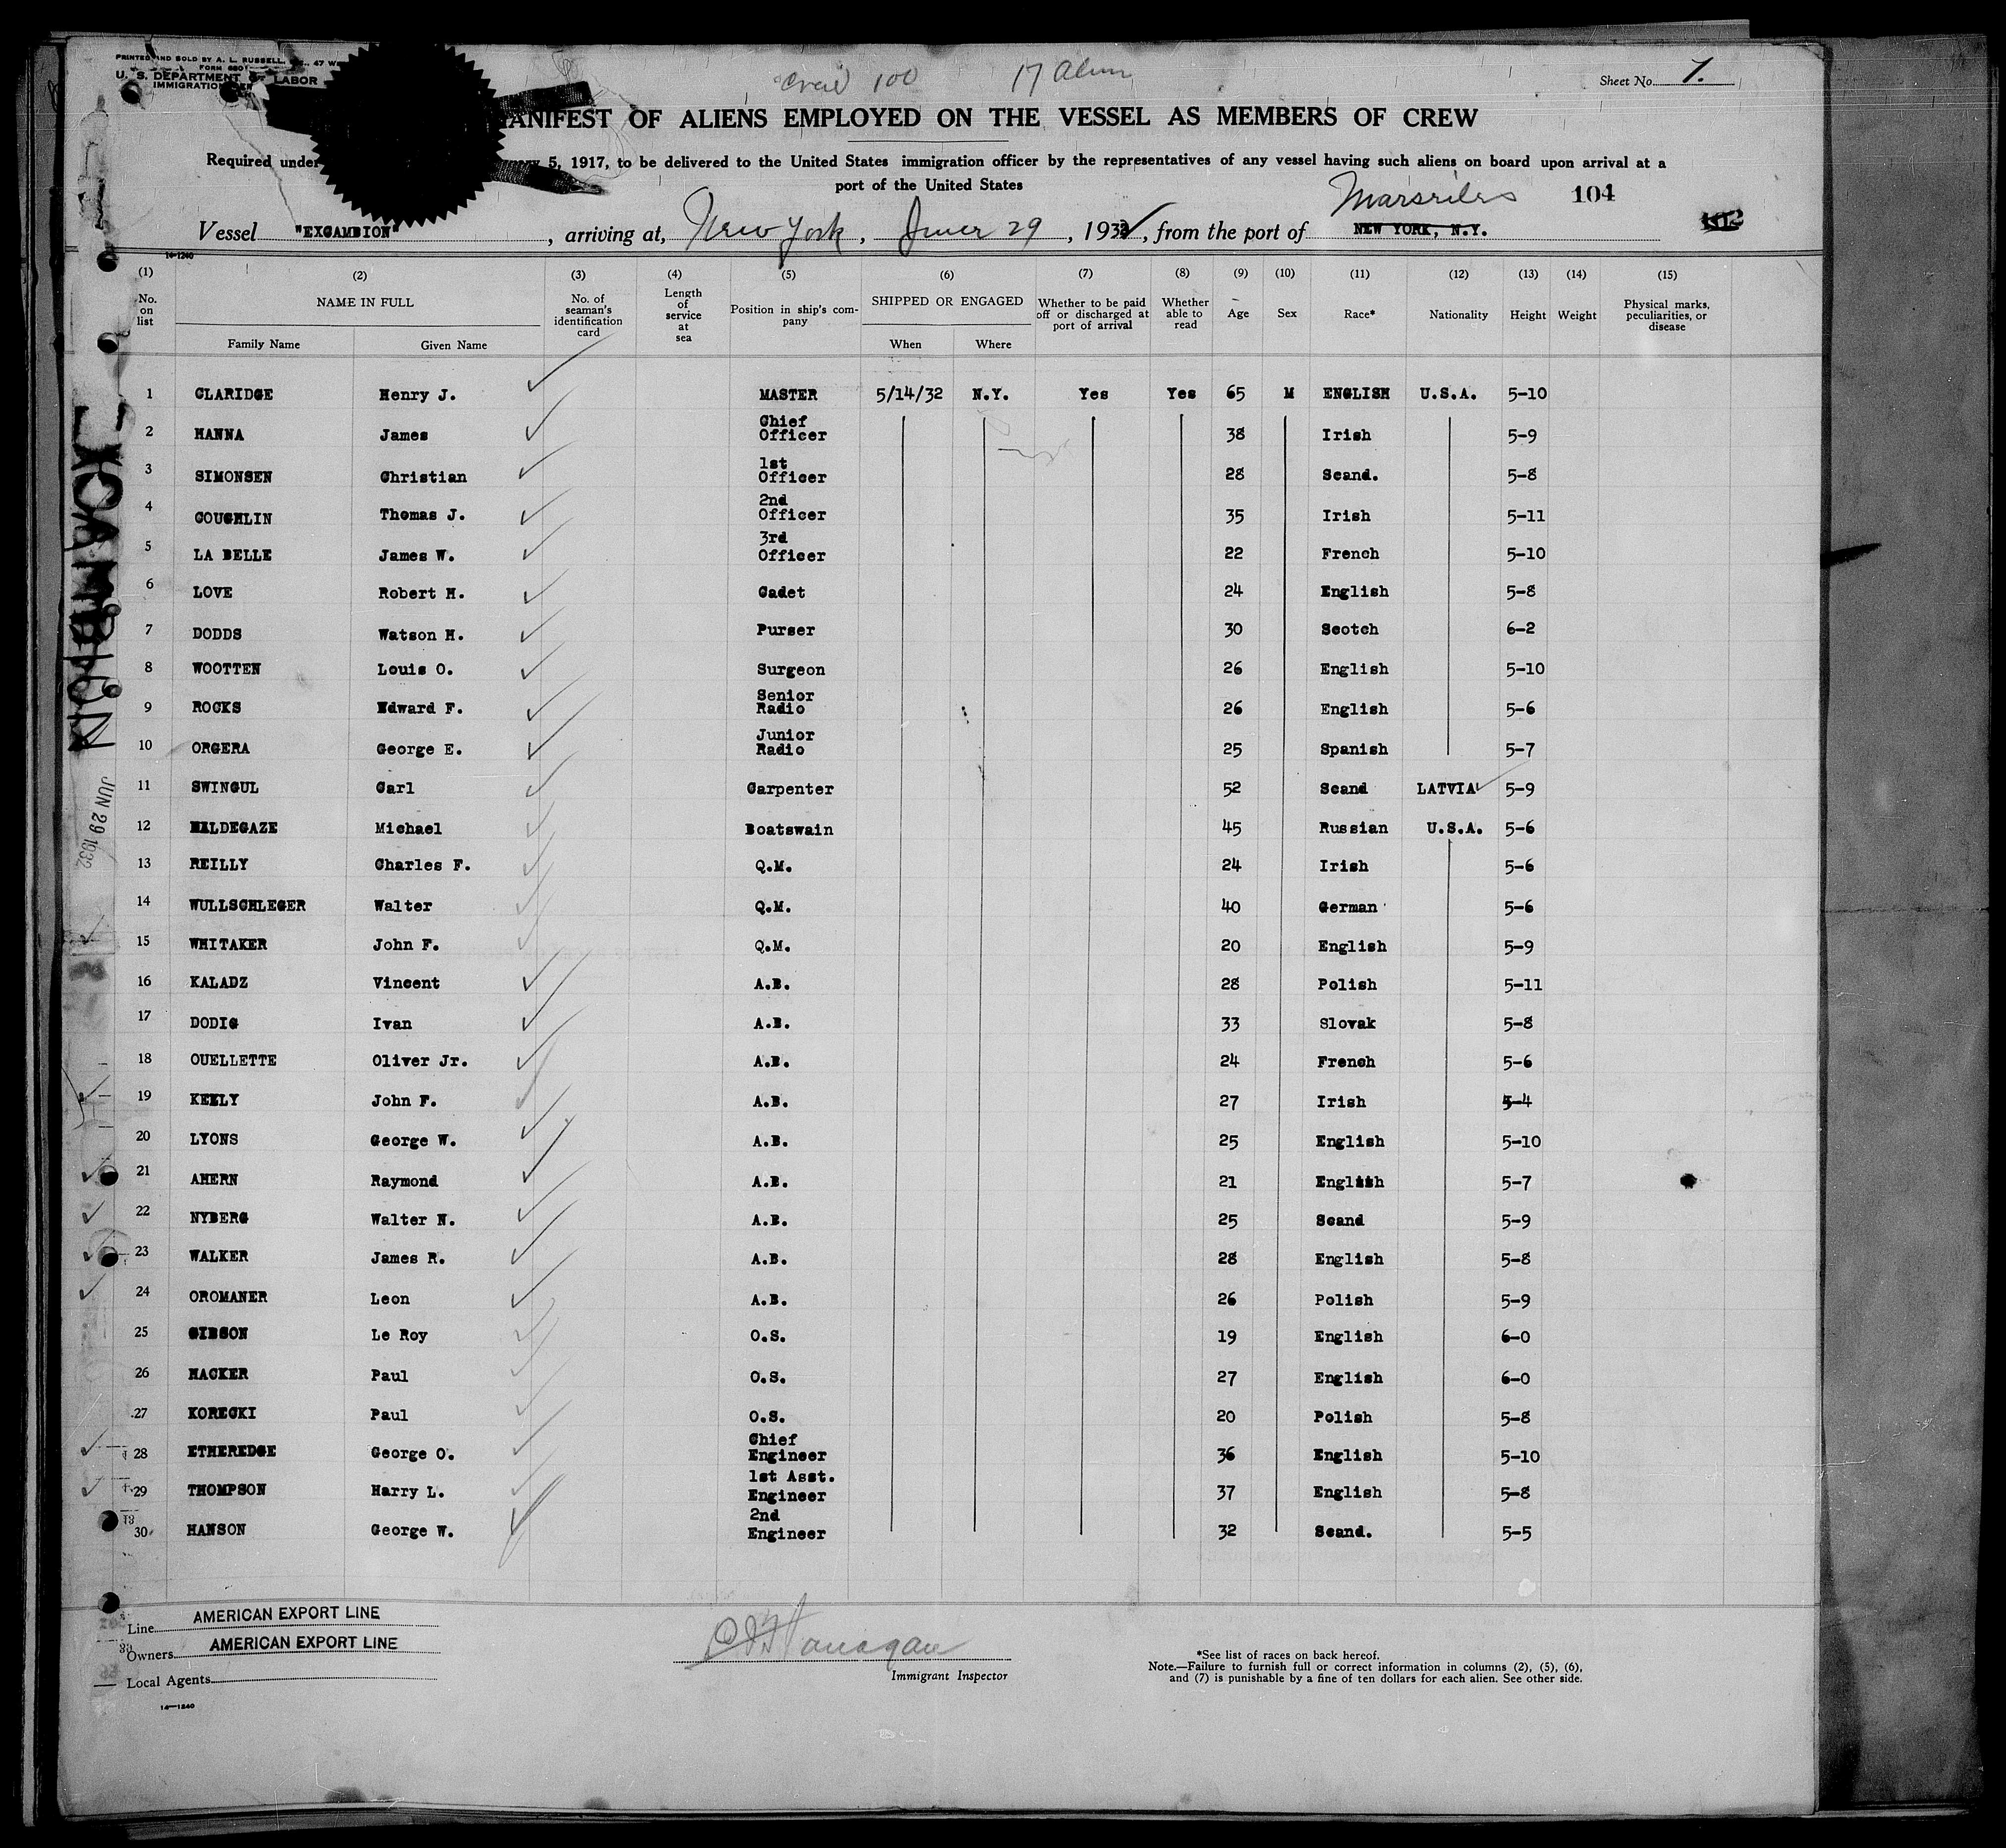 PRINTED AND SOLD BY A. L. RUSSELL, 47 W
FORM 680
U. S. DEPARTMENT OF LABOR
IMMIGRATION
Crew 100 17 Alien
Sheet No. 1.
MANIFEST OF ALIENS EMPLOYED ON THE VESSEL AS MEMBERS OF CREW
Required under 5, 1917, to be delivered to the United States immigration officer by the representatives of any vessel having such aliens on board upon arrival at a
port of the United States
Marseilles 104
Vessel "EXCAMBION", arriving at, New York, June 29, 1932, from the port of NEW YORK, N.Y.
14-1240
(1) (2) (3) (4) (5) (6) (7) (8) (9) (10) (11) (12) (13) (14) (15)
No. on list NAME IN FULL Family Name Given Name No. of seaman's identification card Length of service at sea Position in ship's company SHIPPED OR ENGAGED When Where Whether to be paid off or discharged at port of arrival Whether able to read Age Sex Race* Nationality Height Weight Physical marks, peculiarities, or disease
1 CLARIDGE Henry J. MASTER 5/14/32 N.Y. Yes Yes 65 M ENGLISH U.S.A. 5-10
2 HANNA James Chief Officer 38 Irish 5-9
3 SIMONSEN Christian 1st Officer 28 Scand. 5-8
4 COUGHLIN Thomas J. 2nd Officer 35 Irish 5-11
5 LA BELLE James W. 3rd Officer 22 French 5-10
6 LOVE Robert H. Cadet 24 English 5-8
7 DODDS Watson H. Purser 30 Scotch 6-2
8 WOOTTEN Louis O. Surgeon 26 English 5-10
9 ROCKS Edward F. Senior Radio 26 English 5-6
10 ORGERA George E. Junior Radio 25 Spanish 5-7
11 SWINGUL Carl Carpenter 52 Scand LATVIA 5-9
12 HALDEGAZE Michael Boatswain 45 Russian U.S.A. 5-6
13 REILLY Charles F. Q.M. 24 Irish 5-6
14 WULLSCHLEGER Walter Q.M. 40 German 5-6
15 WHITAKER John F. Q.M. 20 English 5-9
16 KALADZ Vincent A.B. 28 Polish 5-11
17 DODIG Ivan A.B. 33 Slovak 5-8
18 OUELLETTE Oliver Jr. A.B. 24 French 5-6
19 KEELY John F. A.B. 27 Irish 5-4
20 LYONS George W. A.B. 25 English 5-10
21 AHERN Raymond A.B. 21 English 5-7
22 NYBERG Walter N. A.B. 25 Scand 5-9
23 WALKER James R. A.B. 28 English 5-8
24 OROMANER Leon A.B. 26 Polish 5-9
25 GIBSON Le Roy O.S. 19 English 6-0
26 HACKER Paul O.S. 27 English 6-0
27 KORECKI Paul O.S. 20 Polish 5-8
28 ETHEREDGE George O. Chief Engineer 36 English 5-10
29 THOMPSON Harry L. 1st Asst. Engineer 37 English 5-8
30 HANSON George W. 2nd Engineer 32 Scand. 5-5
EXCAMBION
JUN 29 1932
Line AMERICAN EXPORT LINE
Owners AMERICAN EXPORT LINE
Local Agents
14-1240
Immigrant Inspector
*See list of races on back hereof.
Note.—Failure to furnish full or correct information in columns (2), (5), (6),
and (7) is punishable by a fine of ten dollars for each alien. See other side.